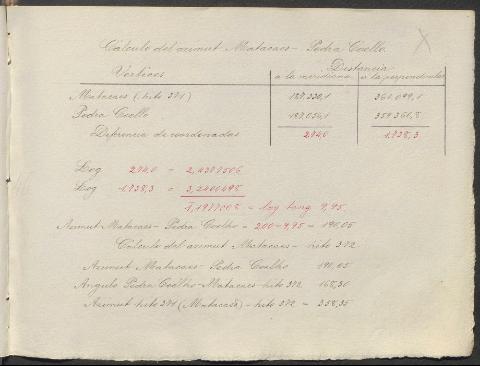 Cálculo del azimut Matacaes - Pedra Coello
Distancia
Vértices a la meridiana a la perpendicular
Matacaes (hito 371) 187.330,1 361.099,1
Pedra Coello 187.056,1 359.360,8
Diferencia de coordenadas 274,0 1.738,3
Log 274,0 = 2,4377506
Log 1.738,3 = 3,2400498
1,1977008 = log tang 9,95
Azimut Matacaes - Pedra Coelho = 200 - 9,95 = 190,05
Cálculo del azimut Matacaes - hito 372
Azimut Matacaes - Pedra Coelho 190,05
Angulo Pedra Coelho - Matacaes - hito 372 168,30
Azimut hito 371 (Matacaes) - hito 372 = 358,35